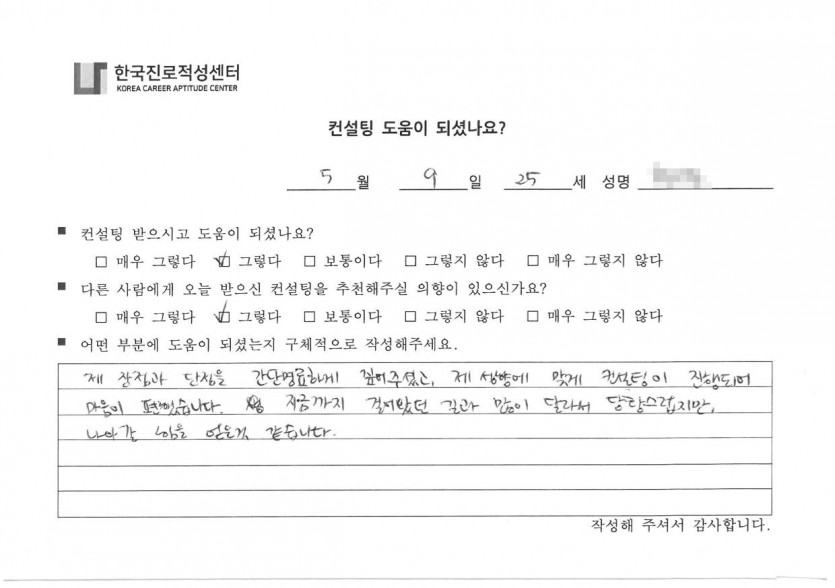 한국진로적성센터
KOREA CAREER APTITUDE CENTER
컨설팅 도움이 되셨나요?
5월 9일 25세 성명
■ 컨설팅 받으시고 도움이 되셨나요?
□ 매우 그렇다 ☑ 그렇다 □ 보통이다 □ 그렇지 않다 □ 매우 그렇지 않다
■ 다른 사람에게 오늘 받으신 컨설팅을 추천해주실 의향이 있으신가요?
□ 매우 그렇다 ☑ 그렇다 □ 보통이다 □ 그렇지 않다 □ 매우 그렇지 않다
■ 어떤 부분에 도움이 되셨는지 구체적으로 작성해주세요.
제 장점과 단점을 간단명료하게 짚어주셨고, 제 성향에 맞게 컨설팅이 진행되어
마음이 편했습니다. 지금까지 걸어왔던 길과 많이 달라서 당황스럽지만,
나아갈 힘을 얻은것 같습니다.
작성해 주셔서 감사합니다.